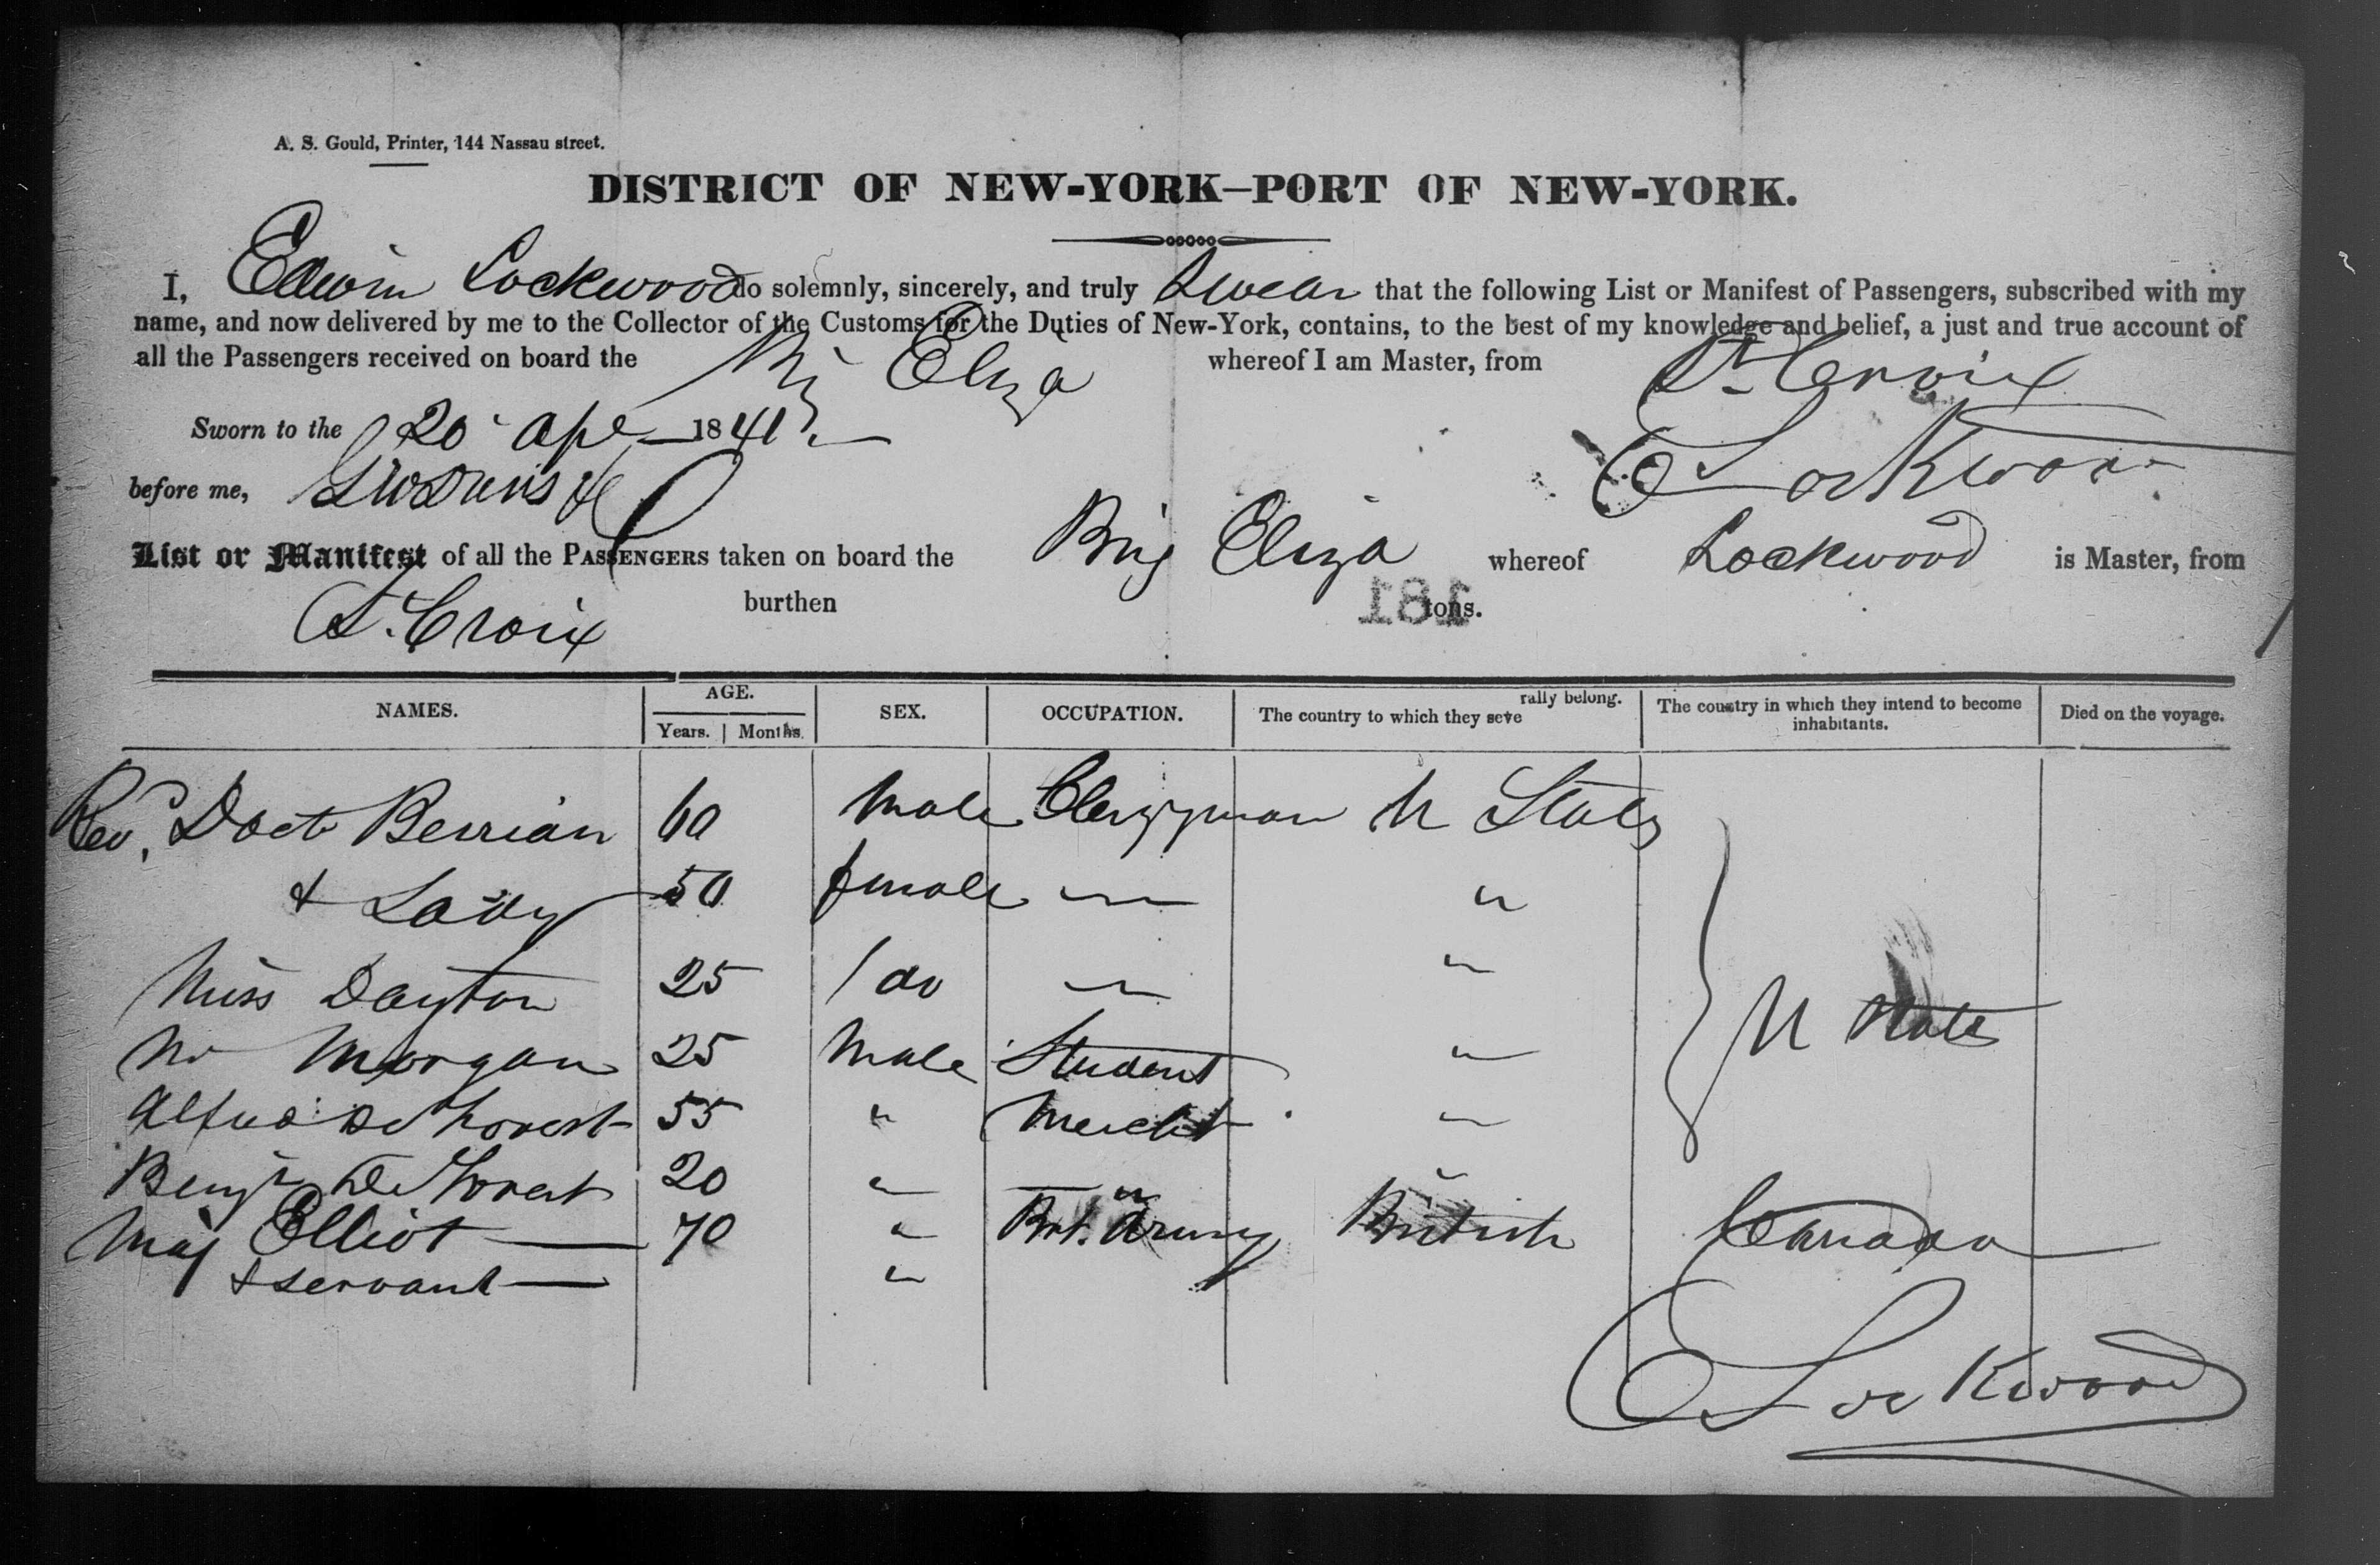 A. S. Gould, Printer, 144 Nassau street.
DISTRICT OF NEW-YORK—PORT OF NEW-YORK.
I, Edwin Lockwood do solemnly, sincerely, and truly Swear that the following List or Manifest of Passengers, subscribed with my
name, and now delivered by me to the Collector of the Customs for the Duties of New-York, contains, to the best of my knowledge and belief, a just and true account of
all the Passengers received on board the Brig Eliza whereof I am Master, from St. Croix
Sworn to the 20 Apl 1841
before me,
E Lockwood
List or Manifest of all the PASSENGERS taken on board the Brig Eliza whereof Lockwood is Master, from
St. Croix burthen tons.
181
NAMES. AGE. Years. Months. SEX. OCCUPATION. The country to which they seve rally belong. The country in which they intend to become inhabitants. Died on the voyage.
Revd. Doct Berrian 60 Male Clergyman U States
& Lady 50 female — "
Miss Dayton 25 do — "
Mr Morgan 25 Male Student " U States
Alfred De Forest 55 " Mercht "
Benjn De Forest 20 " " "
Maj Elliot 70 " Brt. Army British Canada
& servant "
E Lockwood